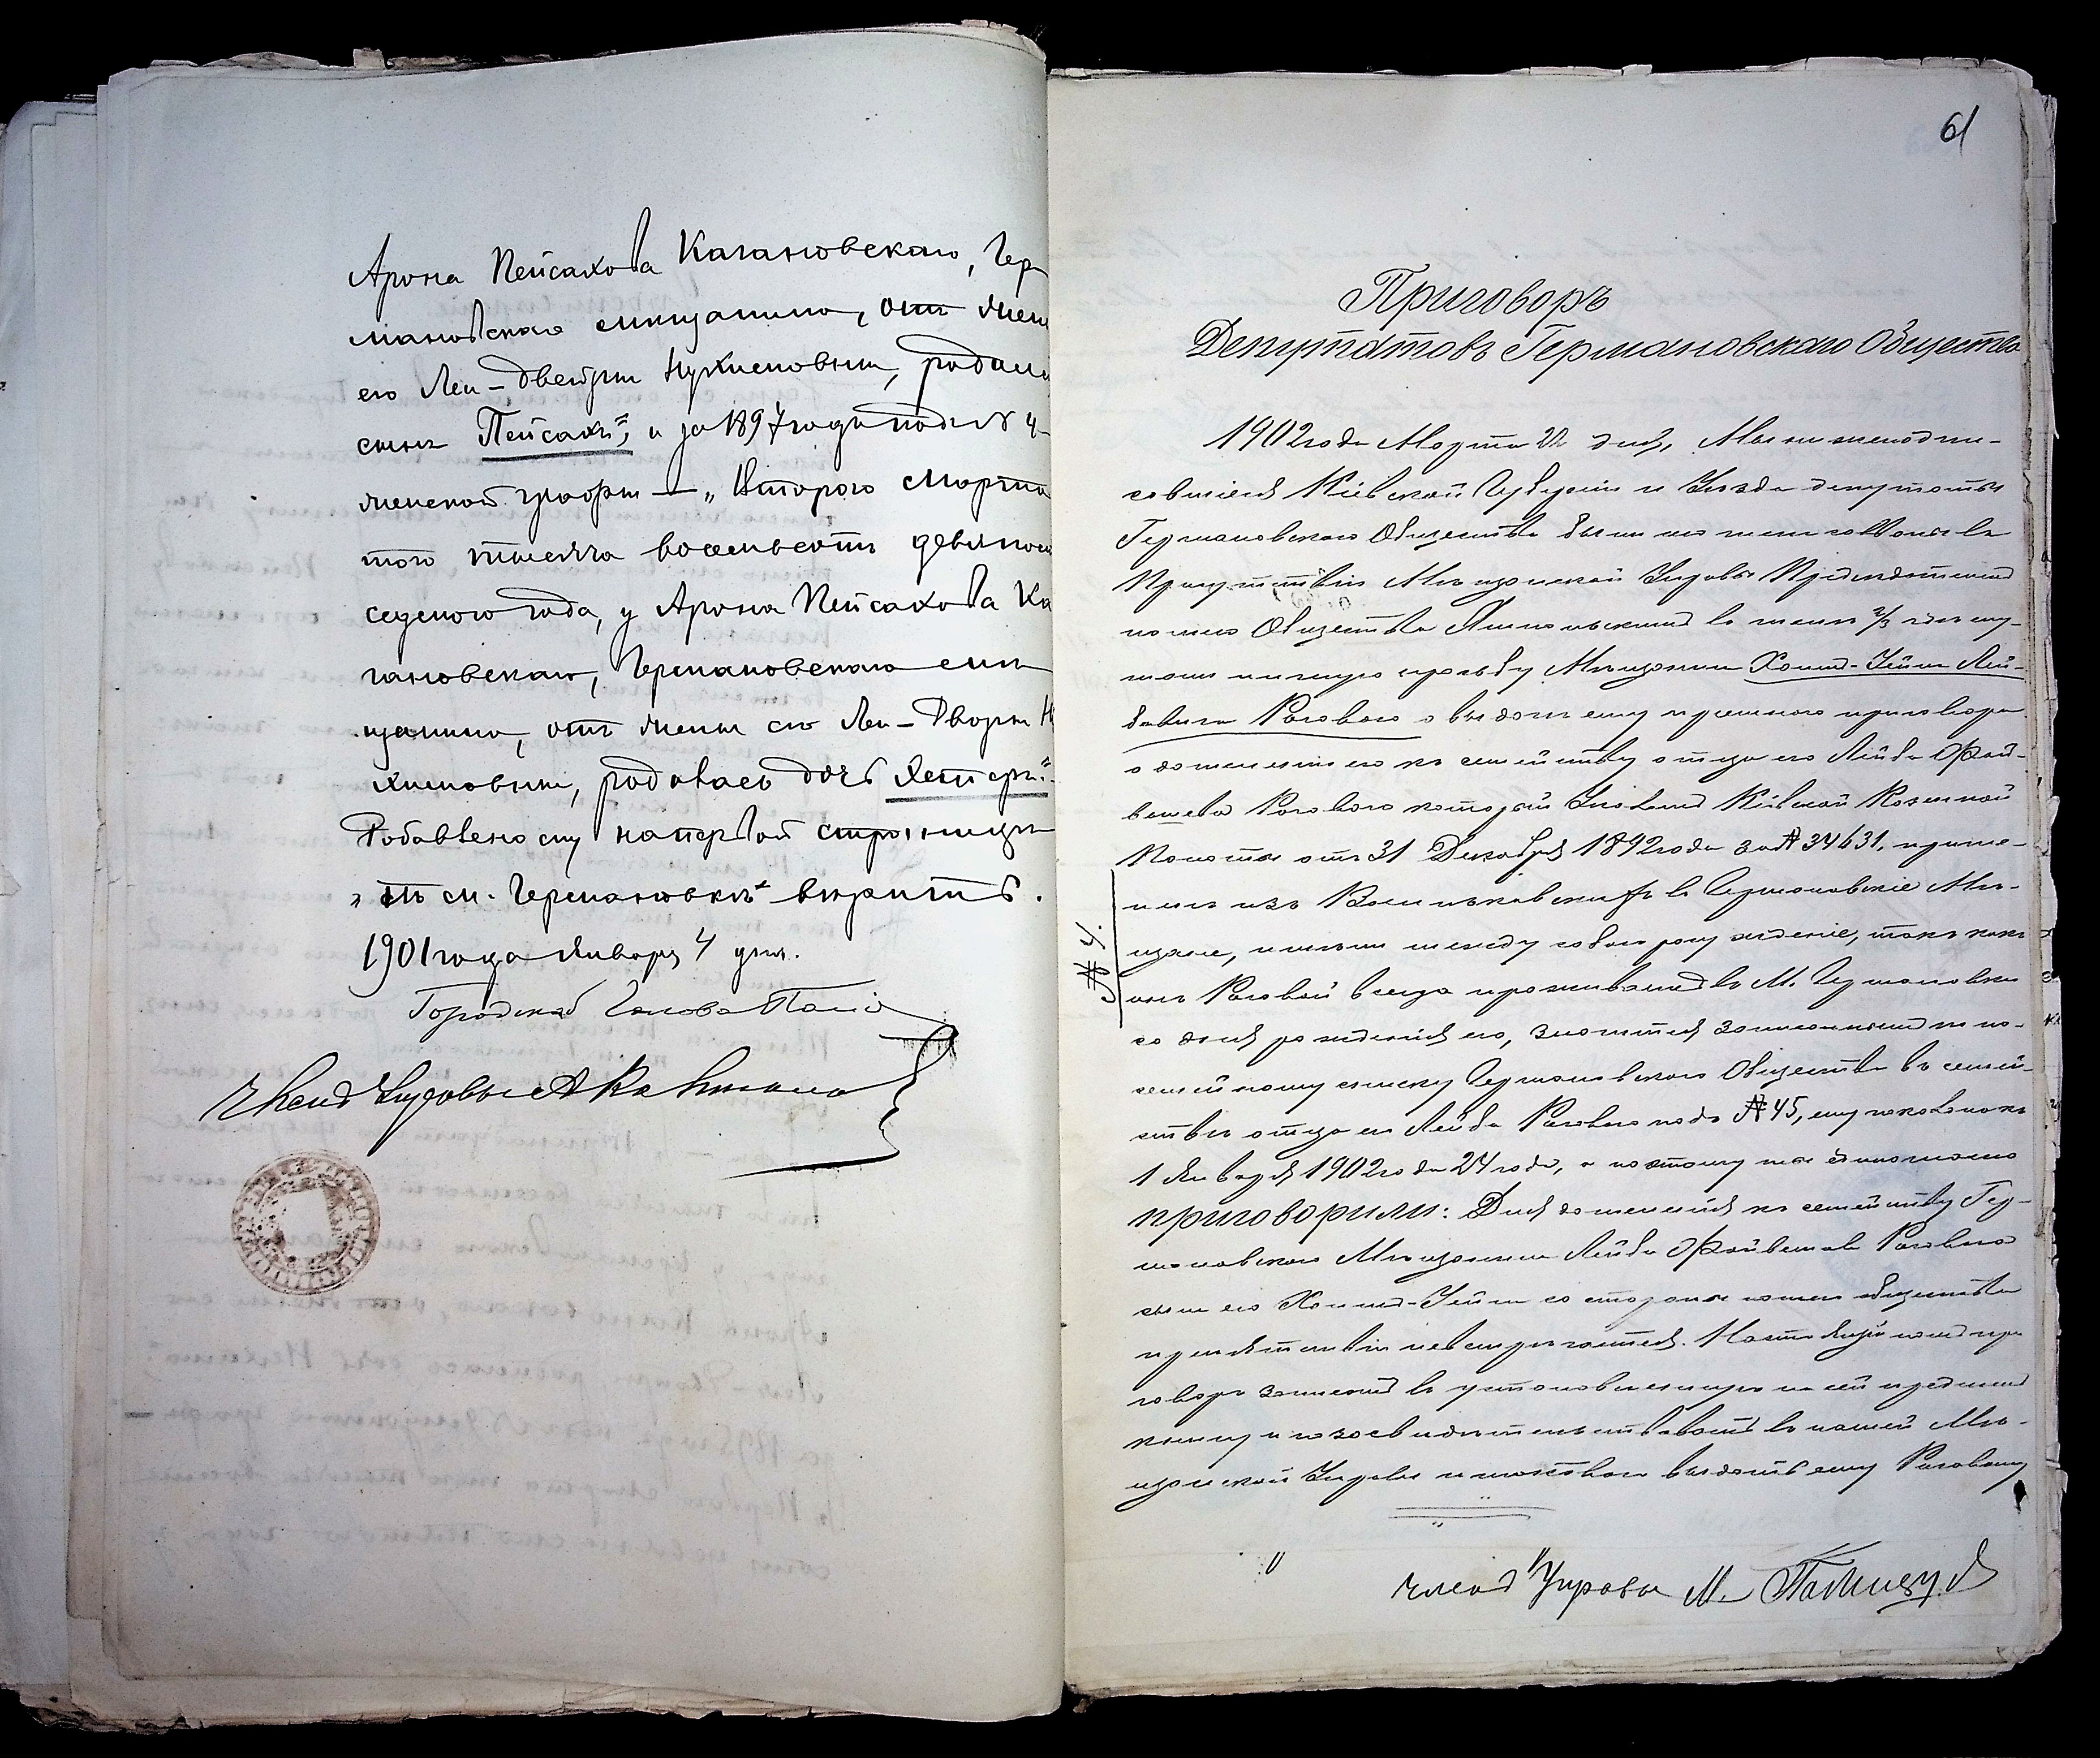 Арона Пейсахова Кагановскаго, Гер
мановскаго мищанина, отъ жены
его Леи-Двейры Нухимовны, родился
сынъ Пейсахъ", и за 1897 годъ подъ № 4
женской графы — „Втораго Марта
того тысяча восемьсотъ девяносто
седьмого года, у Арона Пейсахова Ка
гановскаго, Германовскаго мѣ
щанина, отъ жены его Леи-Дворы Ну
химовны, родилась дочь Эстеръ".
Добавлено сему на первой страницѣ
„въ м. Германовкѣ" вѣрить.
1901 года Января 4 дня.
Городской Голова
Членъ Управы
61
Приговоръ
Депутатовъ Германовскаго Общества
1902 года Марта 22 дня, Мы нижеподпи-
савшіеся Кіевской Губерніи и Уѣзда депутаты
Германовскаго Общества были на
Присутствіи Мѣщанской Управы Предсѣдателемъ
нашего Общества въ числѣ 2/3 гдѣ слу-
шали личную просьбу Мѣщанина Хаима-Зейли Лей-
бовича Рогового о выдачѣ ему пріемнаго приговора
о домененіи его къ семейству отца его Лейбы Фай-
вешева Рогового который Указомъ Кіевской Казенной
Палаты отъ 31 Декабря 1892 года за № 34631, причи-
ленъ изъ Васильковскихъ въ Германовскіе Мѣ-
щане, имѣли между собою разсужденіе, такъ какъ
№ 4.
онъ Роговой всегда проживалъ въ М. Германовкѣ
со дня рожденія его, значится записаннымъ по по-
семейному списку Германовскаго Общества въ семей-
ствѣ отца его Лейбы Рогового подъ № 45, ему
1 Января 1902 года 24 года, а поэтому мы единогласно
приговорили: Для домененія къ семейству Гер-
мановскаго Мѣщанина Лейбы Файвешева Рогового
сына его Хаима-Зейли со стороны нашего общества
препятствій невстрѣчается. Настоящій нашъ при
говоръ записать въ установленную на сей предметъ
книгу и засвидѣтельствовать въ нашей Мѣ-
щанской Управѣ и таковой выдать ему Роговому
Членъ Управы М.